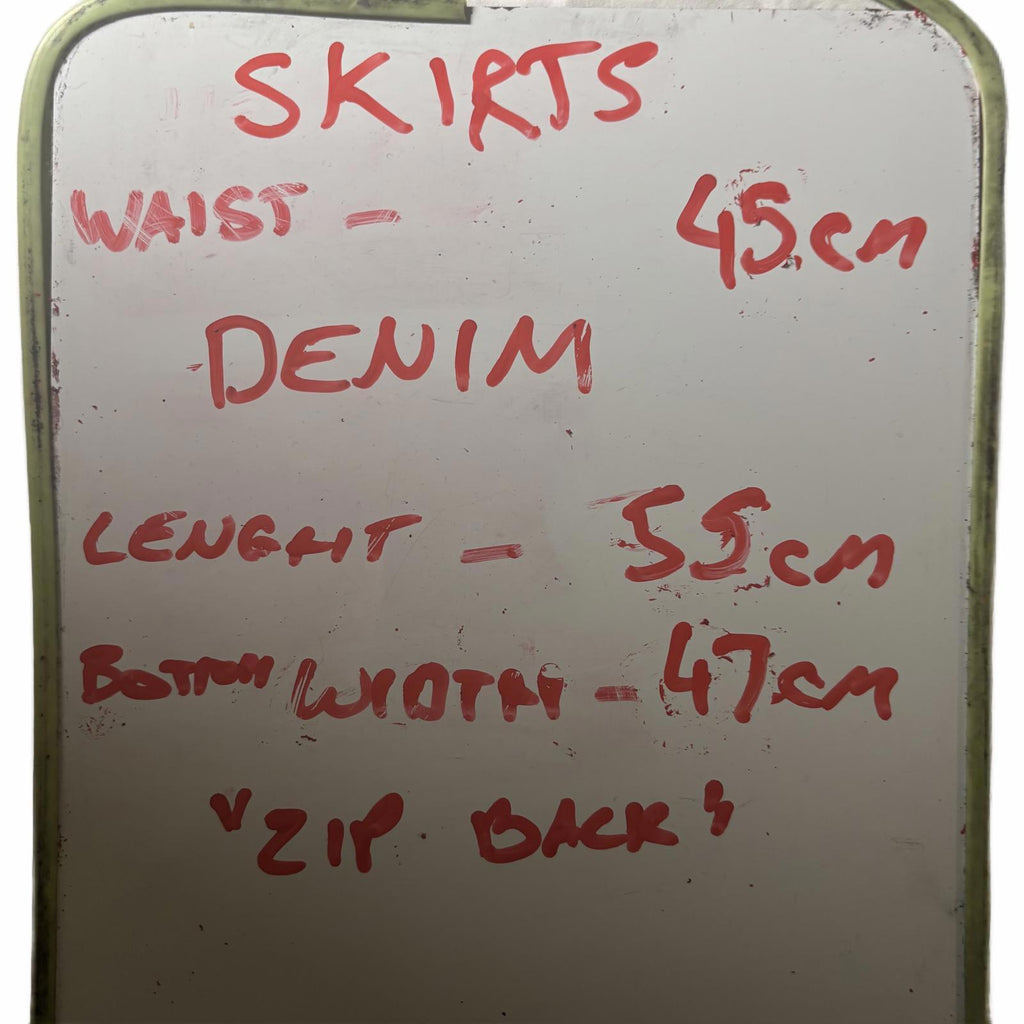 SKIRTS
WAIST - 45cm
DENIM
LENGHT - 55cm
BOTTOM WIDTH - 47cm
"ZIP BACK"